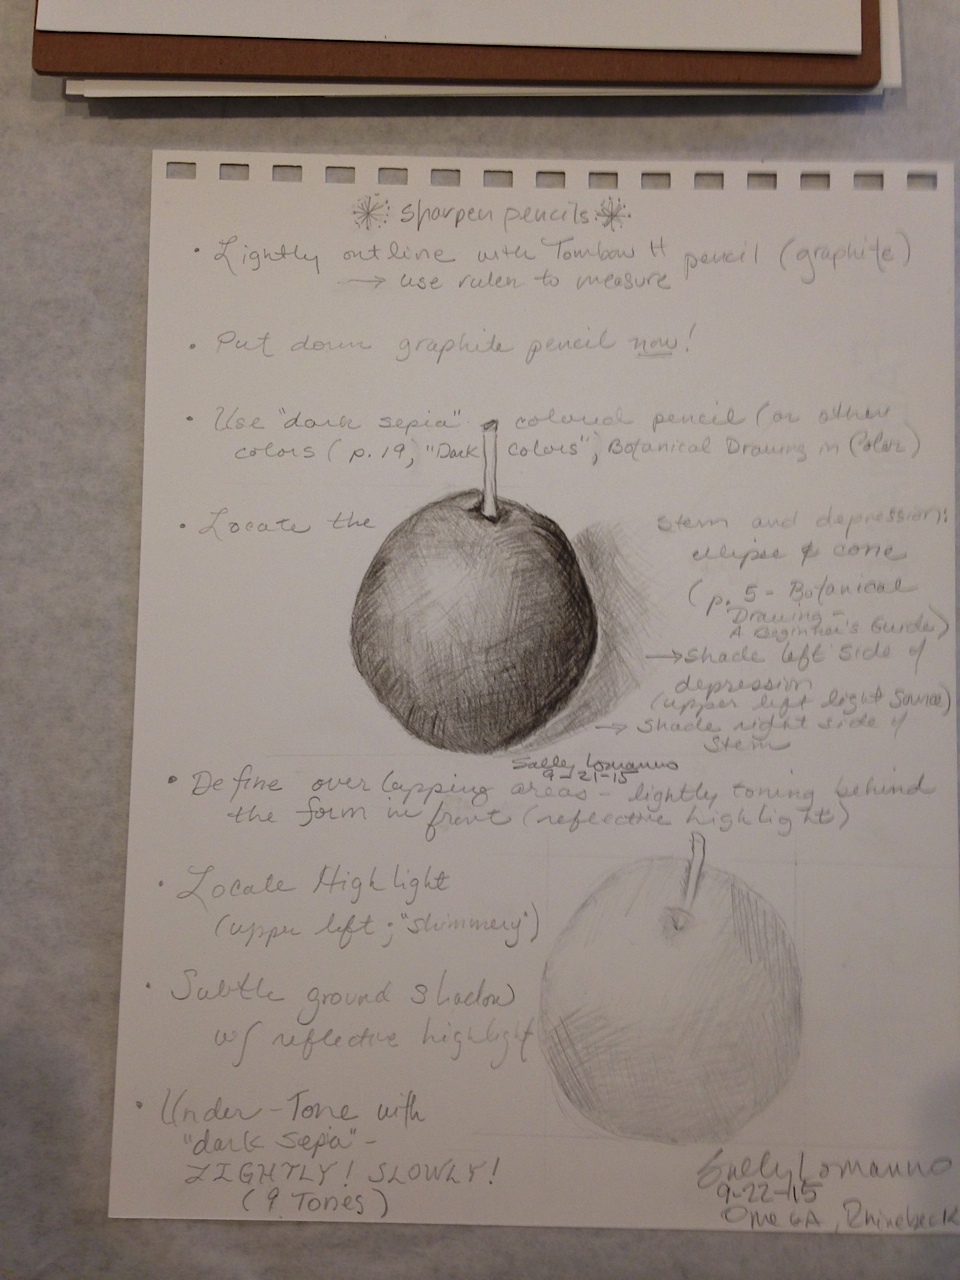 sharpen pencils
• Lightly outline with Tombow H pencil (graphite)
→ use ruler to measure
• Put down graphite pencil now!
• Use "dark sepia" colored pencil (or other
colors (p. 19, "Dark Colors", Botanical Drawing in Color)
• Locate the stem and depression:
ellipse & cone
(p. 5 - Botanical
Drawing -
A Beginner's Guide)
→ shade left side of
depression
(upper left light source)
→ shade right side of
stem
Sally Lomanno
9-21-15
• Define overlapping areas - lightly toning behind
the form in front (reflective highlight)
• Locate Highlight
(upper left; "shimmery")
• Subtle ground shadow
w/ reflective highlight
• Under-Tone with
"dark sepia" -
LIGHTLY! SLOWLY!
(9 Tones)
Sally Lomanno
9-22-15
Omega, Rhinebeck